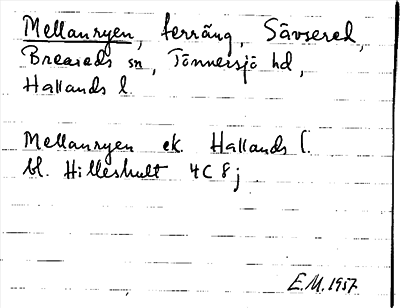 Mellanryen, terräng, Sävsered,
Breareds sn, Tönnersjö hd,
Hallands l.
Mellanryen ek. Hallands l.
bl. Hilleshult 4C 8j
E.M. 1957.